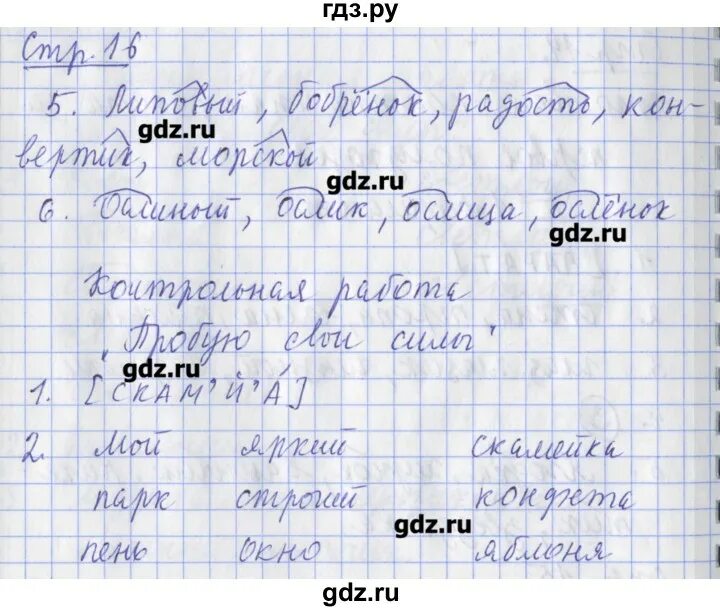 гдз.ру
Стр. 16
5. Липовый, бобрёнок, радость, кон-
gdz.ru
вертик, морской
gdz.ru
6. Ослиный, ослик, ослица, ослёнок
gdz.ru
Контрольная работа
"Пробую свои силы"
gdz.ru
1. [СКАМ'Й'А]
2. мой яркий скамейка
парк строгий конфета
gdz.ru
пень окно яблоня
gdz.ru